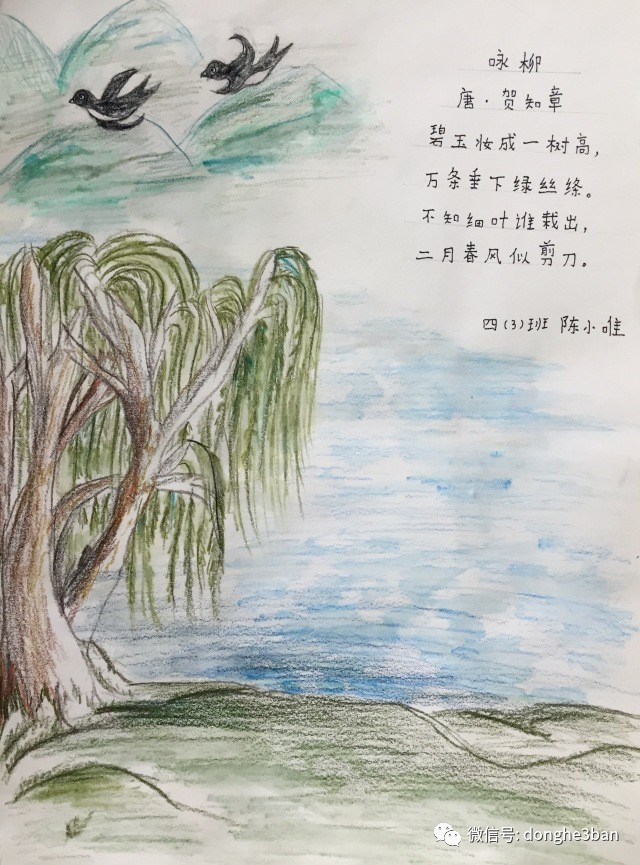 咏柳
唐·贺知章
碧玉妆成一树高，
万条垂下绿丝绦。
不知细叶谁裁出，
二月春风似剪刀。
四(3)班 陈小唯
微信号: donghe3ban